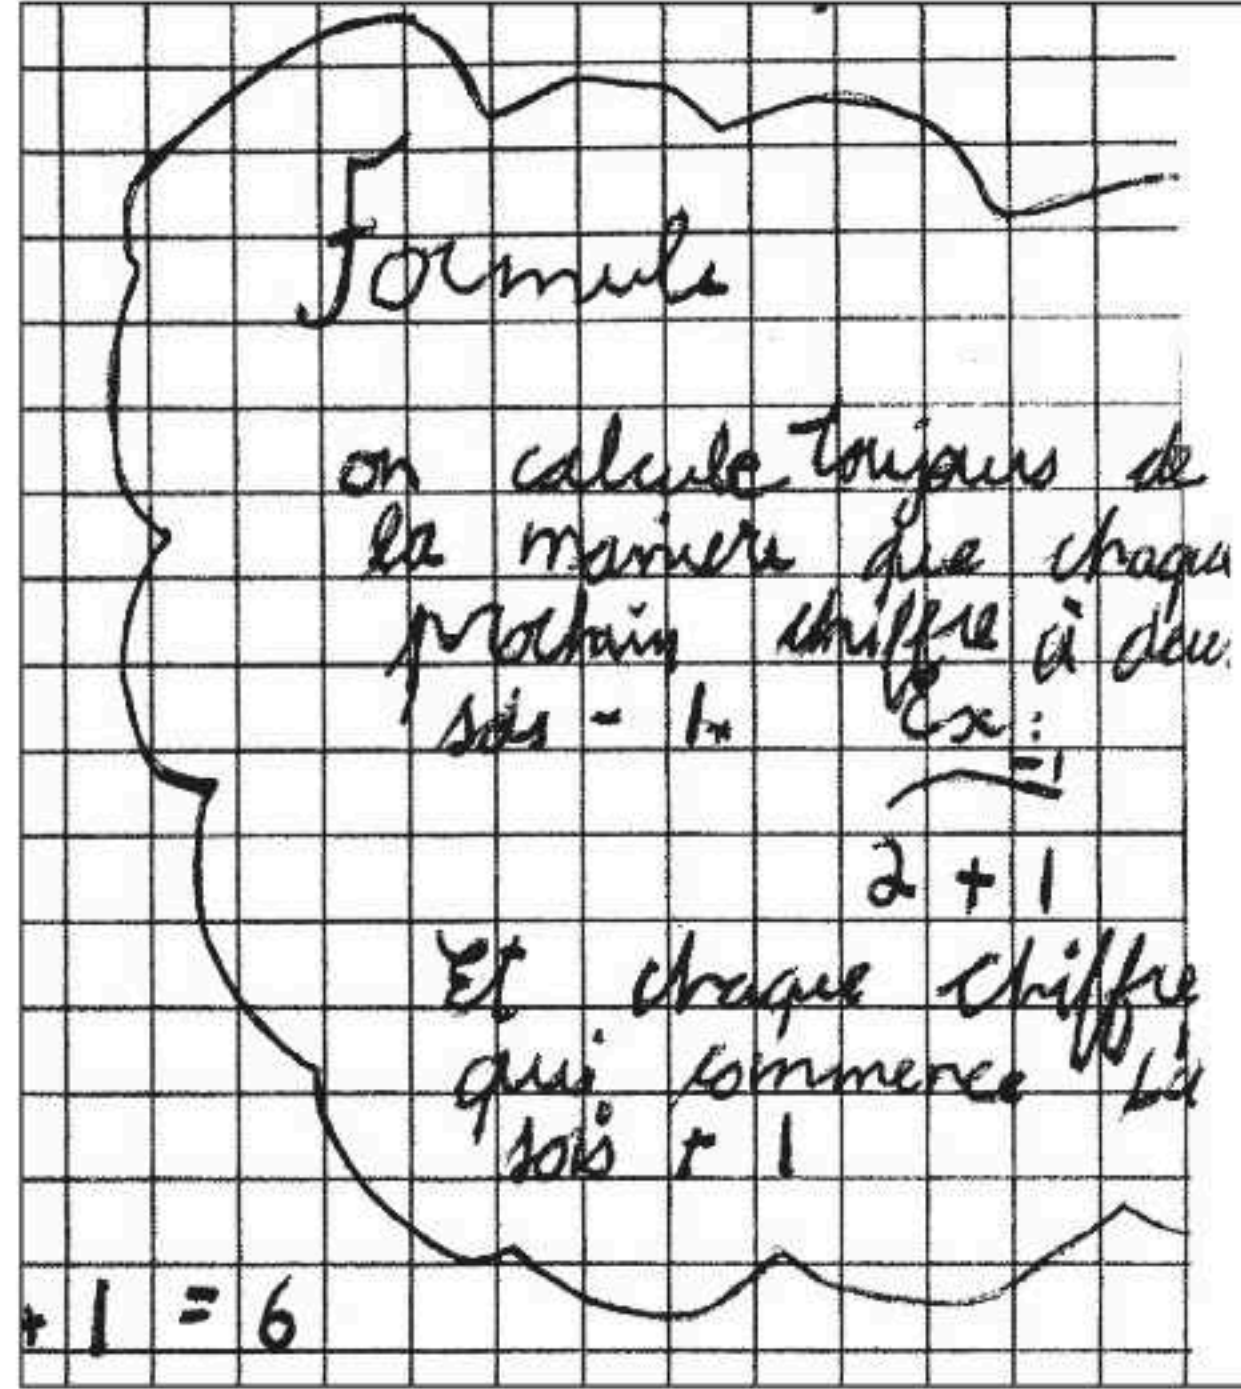 Formule
on calcule toujours de
la maniere que chaque
prochain chiffre à
sois - 1. Ex:
-1
2 + 1
Et chaque chiffre
qui commence
sois + 1
+ 1 = 6